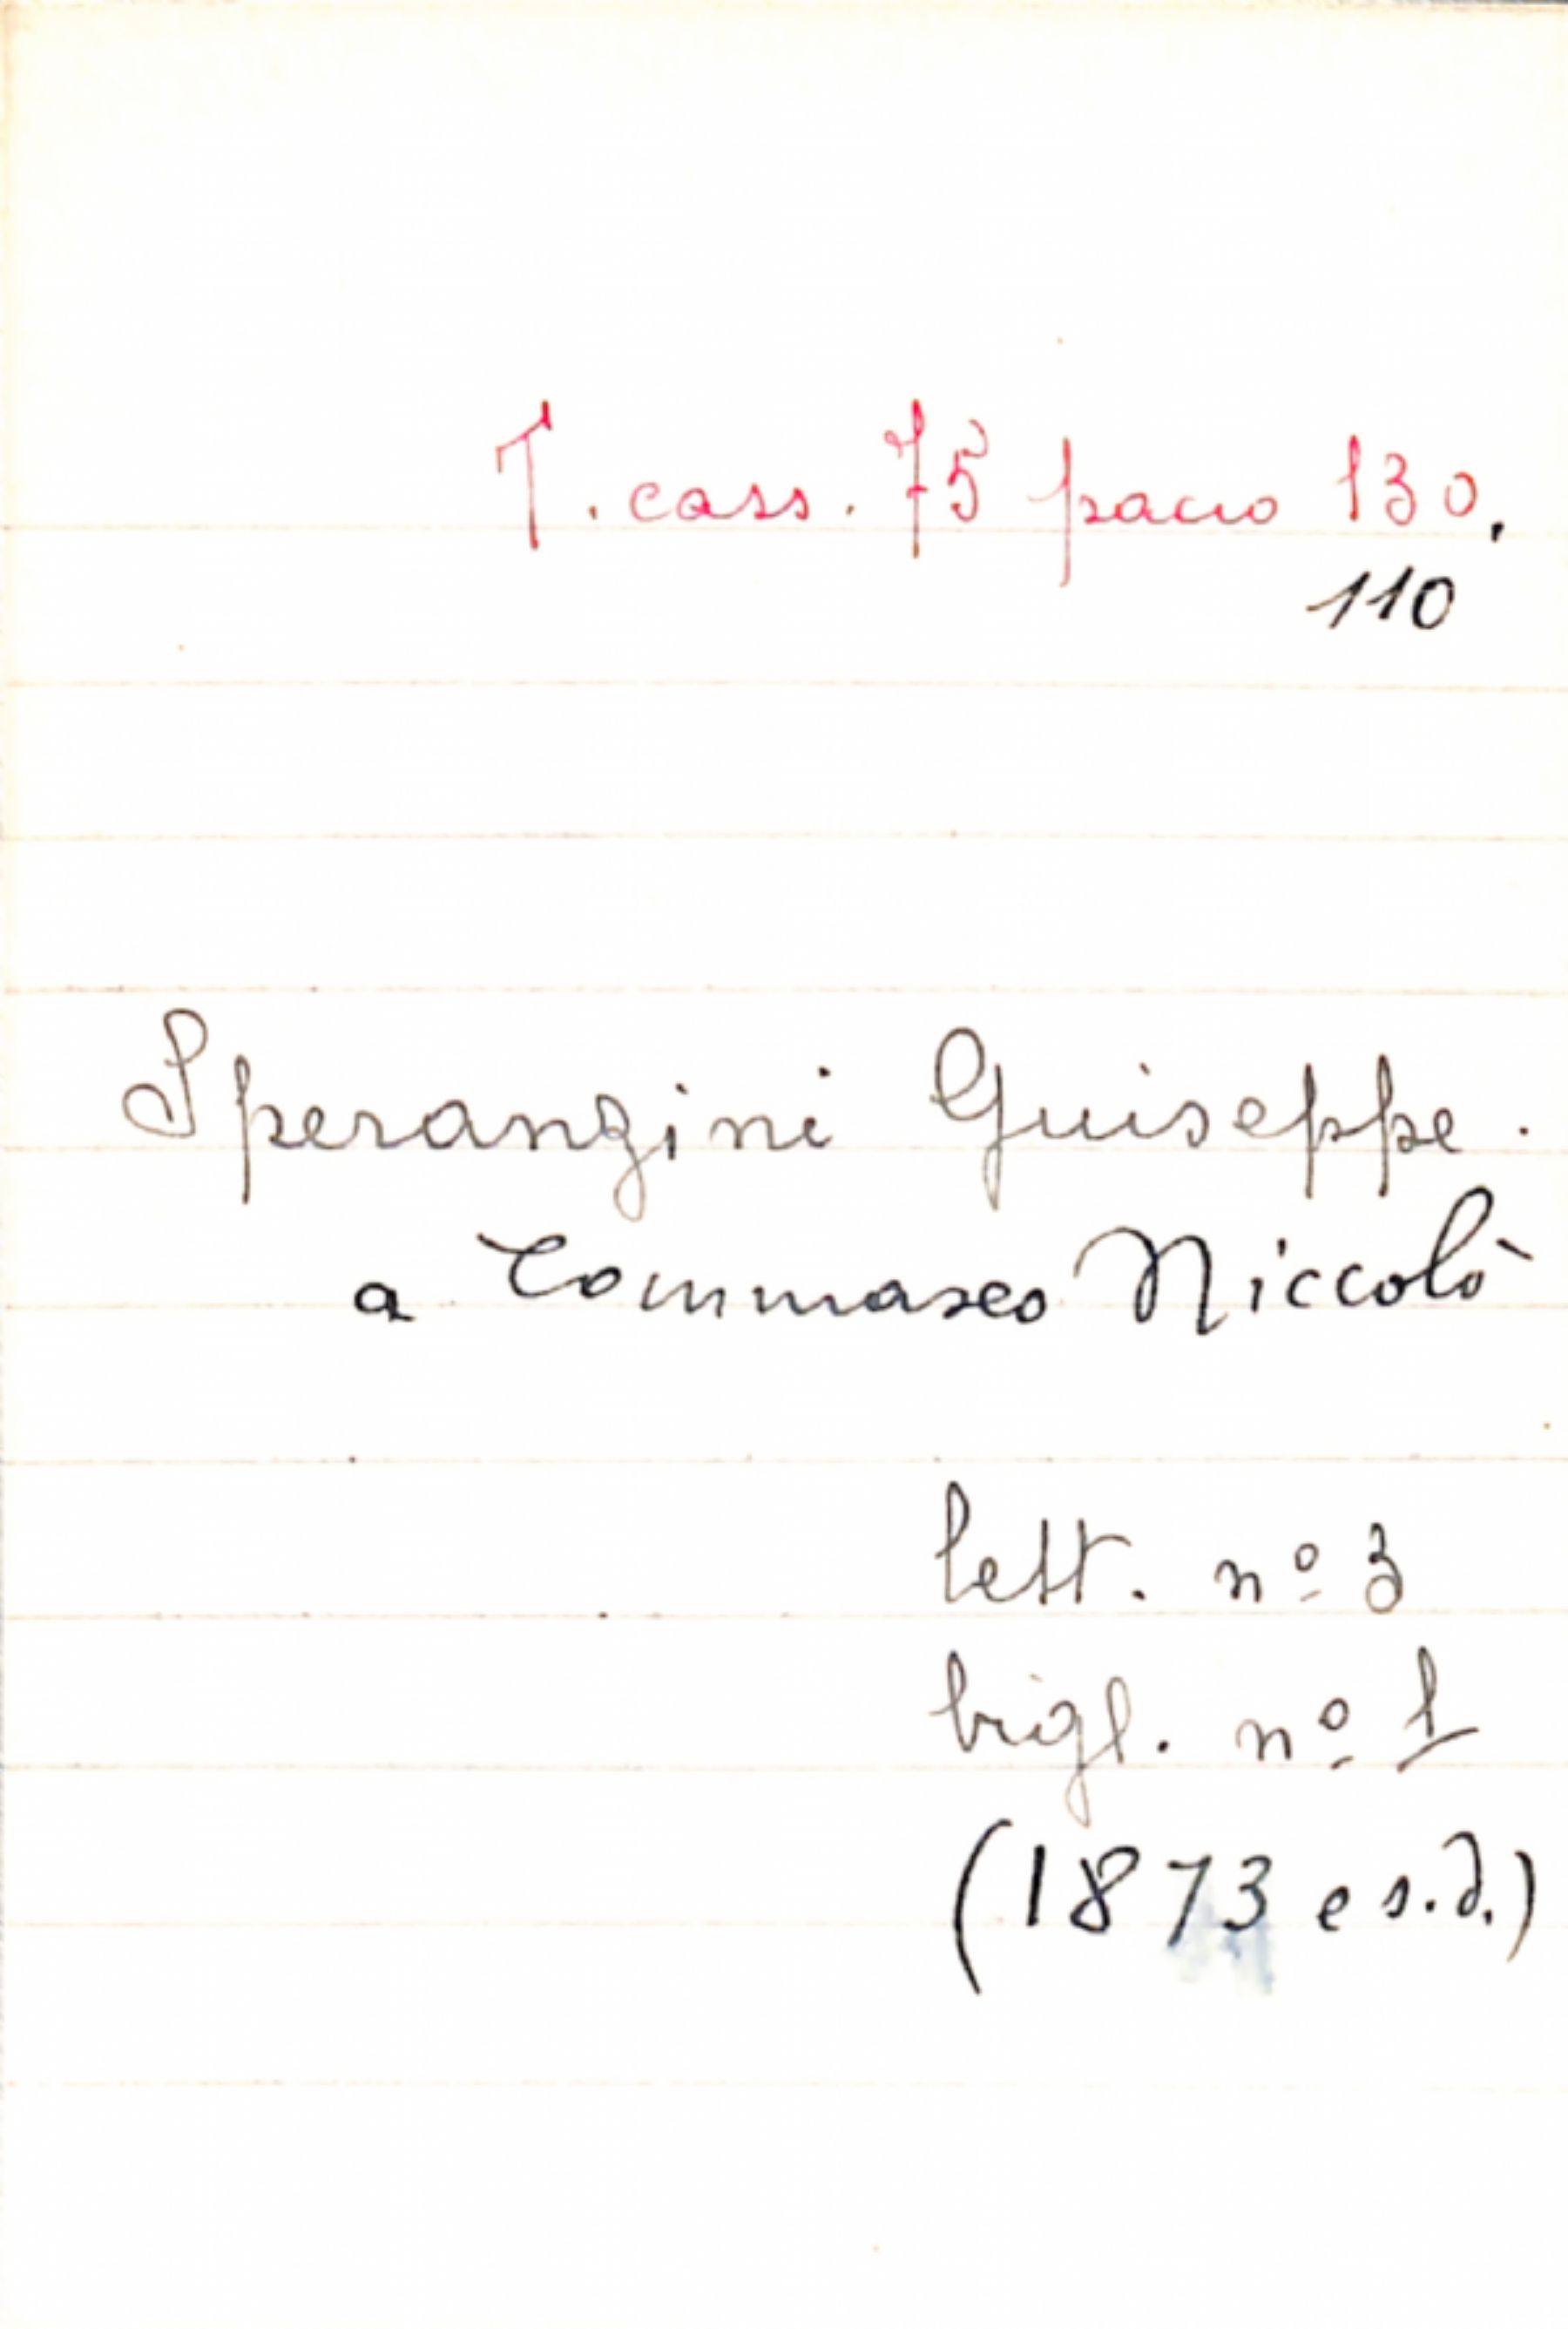 T. cass. 75 pacco 130.
110
Speranzini Giuseppe.
a Tommaseo Niccolò
lett. nº 3
bigl. nº 1
(1873 e s.d.)